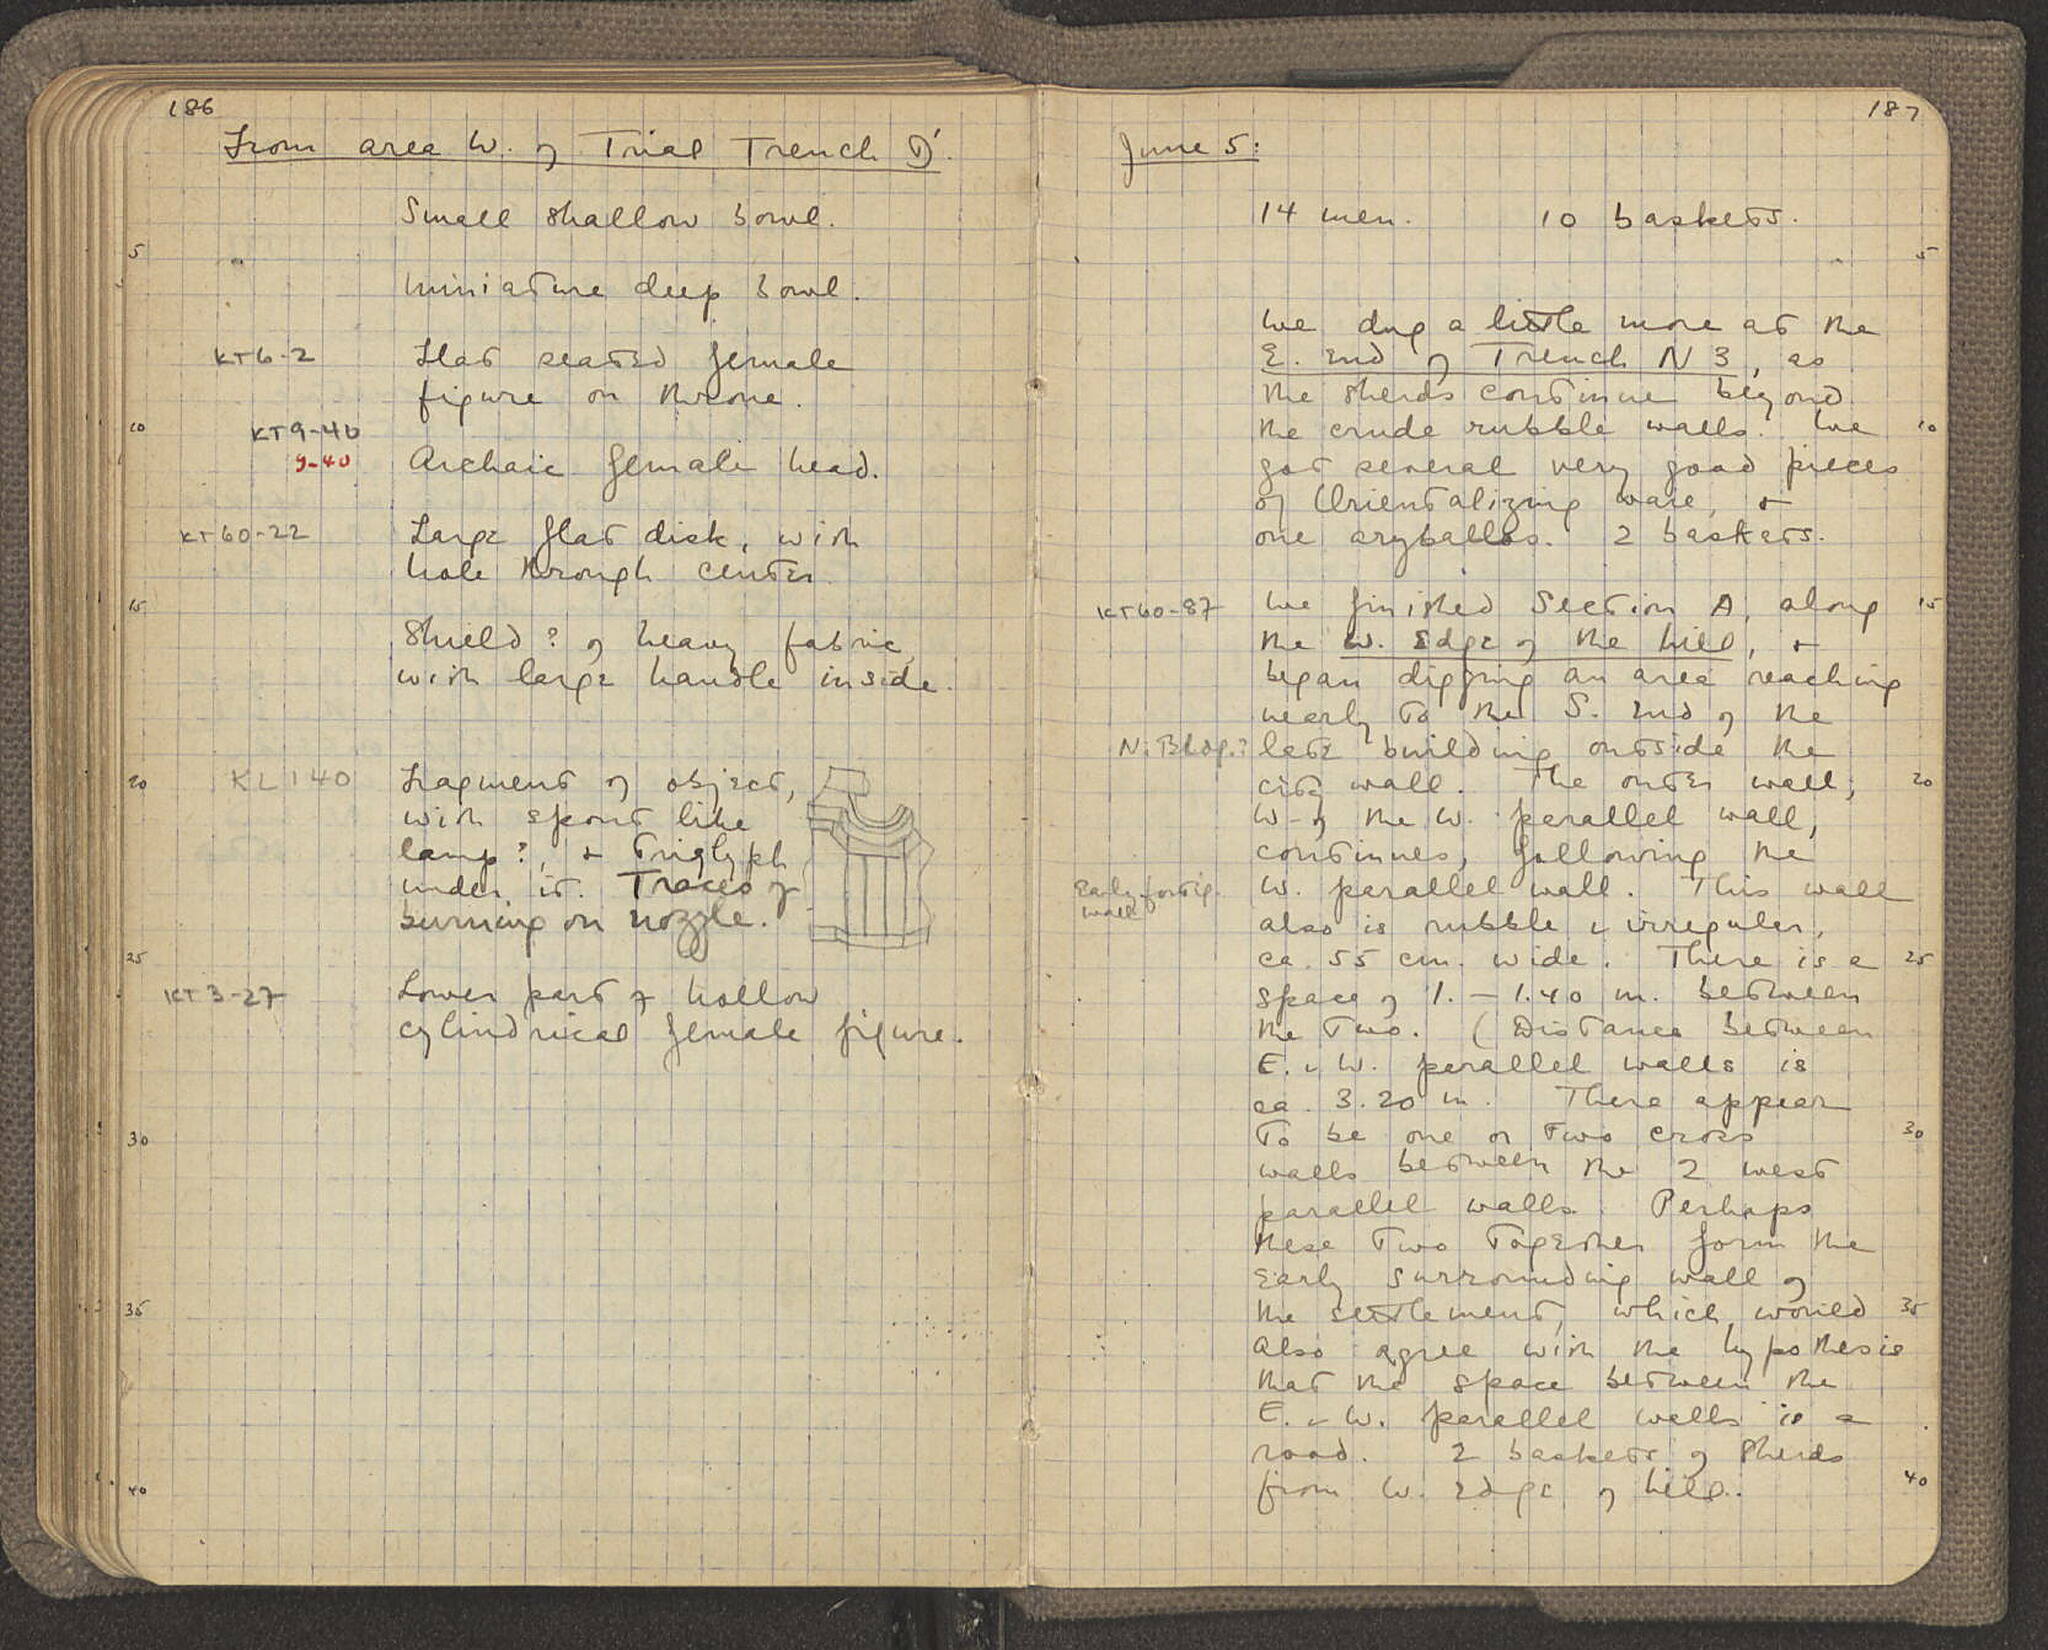 186
From area W. of Trial Trench D'.
Small shallow bowl.
5
Miniature deep bowl.
KT6-2 Flat seated female
figure on throne.
10
KT9-40
9-40 Archaic female head.
KT60-22 Large flat disk, with
hole through center.
15
Shield? of heavy fabric,
with large handle inside.
20 KL140 Fragment of object,
with spout like
lamp?, + triglyph
under it. Traces of
burning on nozzle.
25
KT3-27 Lower part of hollow
cylindrical female figure.
30
35
40
187
June 5:
14 men. 10 baskets.
5
We dug a little more at the
E. end of Trench N 3, as
the sherds continue beyond
the crude rubble walls. We 10
got several very good pieces
of Orientalizing ware, +
one aryballos. 2 baskets.
KT60-87 We finished Section A, along 15
the W. edge of the hill, +
began digging an area reaching
nearly to the S. end of the
N. Bldg.? late building outside the
city wall. The outer wall, 20
W. of the W. parallel wall,
continues, following the
Early fortif. W. parallel wall. This wall
wall also is rubble + irregular,
ca. 55 cm. wide. There is a 25
space of 1. – 1.40 m. between
the two. (Distance between
E. + W. parallel walls is
ca. 3.20 m. There appear
to be one or two cross 30
walls between the 2 west
parallel walls. Perhaps
these two together form the
early surrounding wall of
the settlement, which would 35
also agree with the hypothesis
that the space between the
E. + W. parallel walls is a
road. 2 baskets of sherds
from W. edge of hill. 40